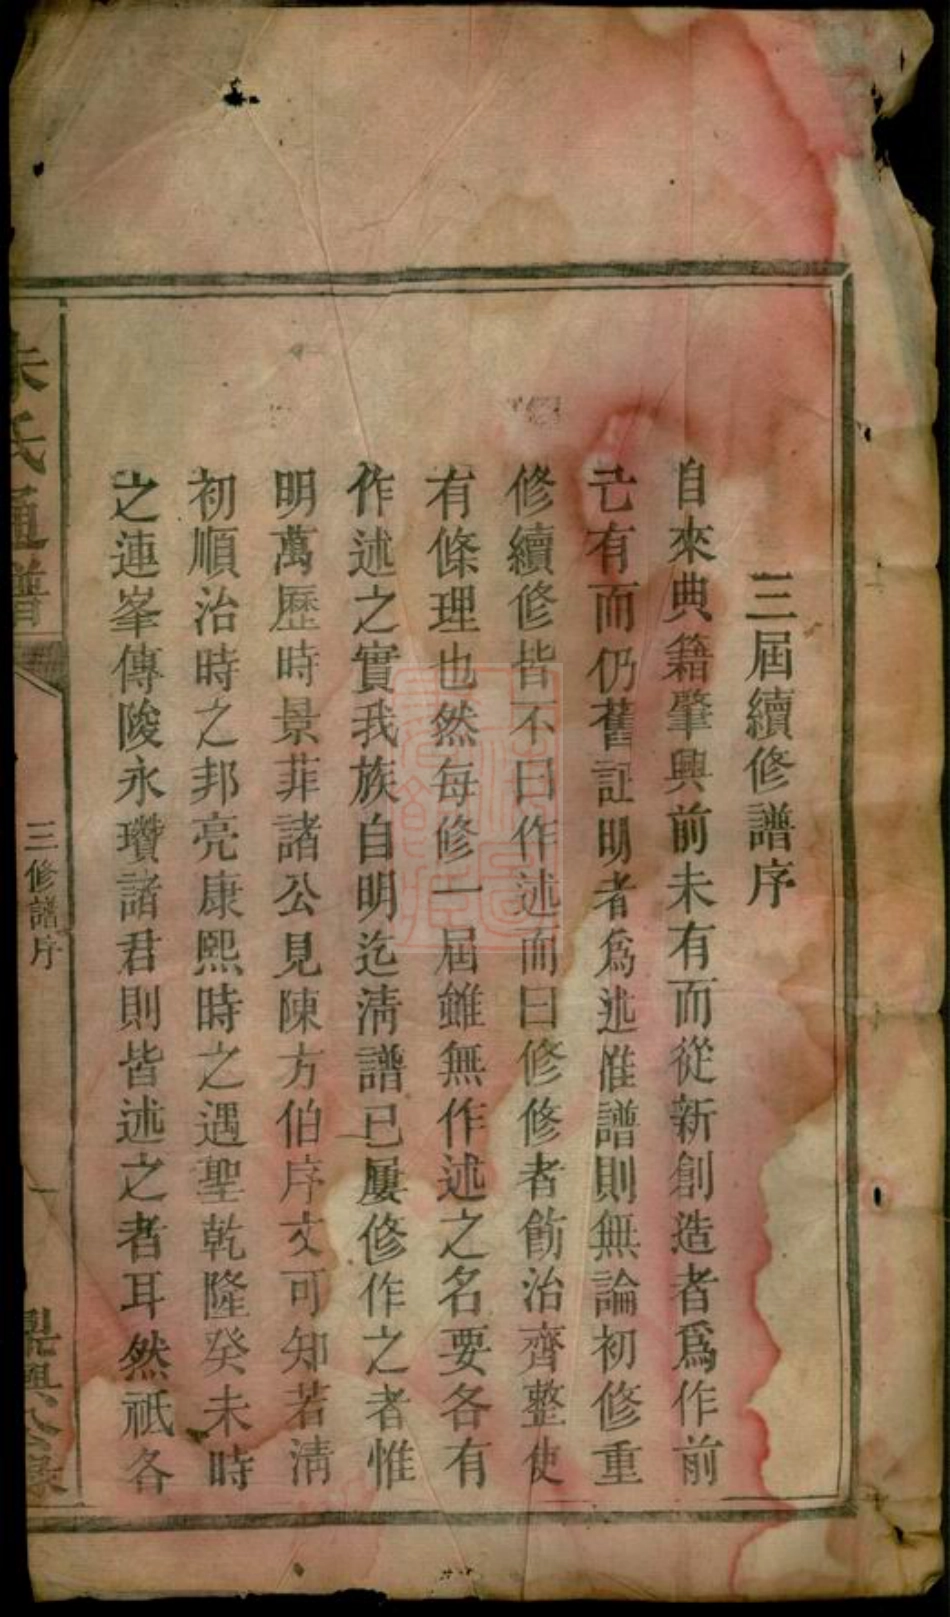 三屆續修譜序
自來典籍肇興前未有而從新創造者爲作前
已有而仍舊証明者爲述惟譜則無論初修重
修續修皆不曰作述而曰修修者飭治齊整使
有條理也然每修一屆雖無作述之名要各有
作述之實我族自明迄淸譜已屢修作之者惟
明萬歷時景菲諸公見陳方伯序文可知若淸
初順治時之邦亮康熙時之遇聖乾隆癸未時
之連峯傳陵永瓚諸君則皆述之者耳然祇各
朱氏通譜
三修譜序
一